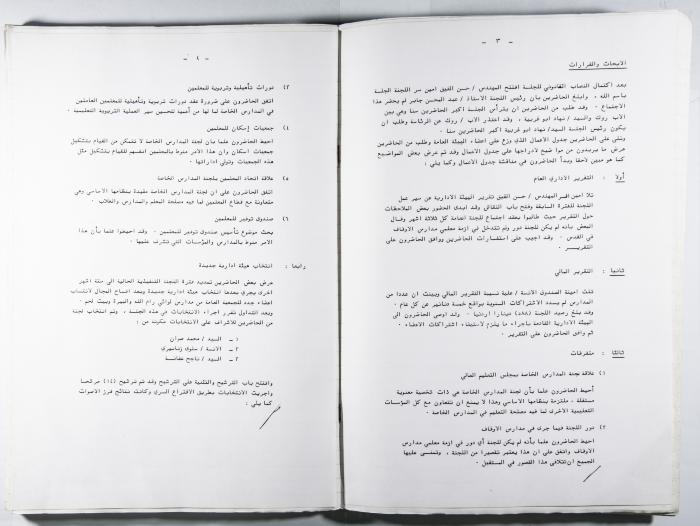 - ٣ -
الابحاث والقرارات
بعد اكتمال النصاب القانوني للجلسة افتتح المهندس / حسن القيق امين سر اللجنة الجلسة
باسم الله ، وابلغ الحاضرين بان رئيس اللجنة الاستاذ / عبد المحسن جابر لم يحضر هذا
الاجتماع . وقد طلب من الحاضرين ان يترأس الجلسة اكبر الحاضرين سنا وهي بين
الاب روك والسيد / نهاد ابو غربية ، وقد اعتذر الاب / روك عن الرئاسة وطلب ان
يكون رئيس الجلسة السيد / نهاد ابو غربية اكبر الحاضرين سنا .
وتلى على الحاضرين جدول الاعمال الذي وزع على اعضاء الهيئة العامة وطلب من الحاضرين
عرض ما يريدون من مواضيع لادراجها على جدول الاعمال وقد تم عرض بعض المواضيع
كما هو مبين لاحقا وبدأ الحاضرون في مناقشة جدول الاعمال وكما يلي :
أولا : التقرير الاداري العام
تلا امين السر المهندس / حسن القيق تقرير الهيئة الادارية عن سير عمل
اللجنة للفترة السابقة وفتح باب النقاش وقد ابدى الحضور بعض الملاحظات
حول التقرير حيث طالبوا بعقد اجتماع للجنة العامة كل ثلاثة اشهر وقال
البعض بأنه لم يكن للجنة دور ولم تتدخل في ازمة معلمي مدارس الاوقاف
في القدس . وقد اجيب على استفسارات الحاضرين ووافق الحاضرون على
التقريـــر .
ثانيا : التقرير المالي
تلت امينة الصندوق الآنسة / علية نسيبة التقرير المالي وبينت ان عددا من
المدارس لم يسدد الاشتراكات السنوية بواقع خمسة دنانير عن كل عام .
وقد بلغ رصيد اللجنة (٥٨٨) دينارا اردنيا . وقد اوصى الحاضرون الى
الهيئة الادارية القادمة باجراء ما يلزم لاستيفاء اشتراكات الاعضاء .
ثم وافق الحاضرون على التقرير .
ثالثا : متفرقات
١) علاقة لجنة المدارس الخاصة بمجلس التعليم العالي
أحيط الحاضرون علما بأن لجنة المدارس الخاصة هي ذات شخصية معنوية
مستقلة ، ملتزمة بنظامها الاساسي وهذا لا يمنع ان نتعاون مع كل المؤسسات
التعليمية الاخرى لما فيه مصلحة التعليم في المدارس الخاصة .
٢) دور اللجنة فيما جرى في مدارس الاوقاف
احيط الحاضرون علما بأنه لم يكن للجنة أي دور في أزمة معلمي مدارس
الاوقاف واتفق على ان هذا يعتبر تقصيرا من اللجنة ، وتمنى عليها
الجميع ان تتلافى هذا القصور في المستقبل .
- ٤ -
٣) دورات تأهيلية وتربوية للمعلمين
اتفق الحاضرون على ضرورة عقد دورات تربوية وتأهيلية للمعلمين العاملين
في المدارس الخاصة لما لها من أهمية لتحسين سير العملية التربوية التعليمية .
٤) جمعيات إسكان للمعلمين
احيط الحاضرون علما بان لجنة المدارس الخاصة لا تتمكن من القيام بتشكيل
جمعيات اسكان وان هذا الأمر منوط بالمعلمين انفسهم للقيام بتشكيل مثل
هذه الجمعيات وتولي اداراتها .
٥) علاقة اتحاد المعلمين بلجنة المدارس الخاصة
اتفق الحاضرون على ان لجنة المدارس الخاصة مقيدة بنظامها الاساسي وهي
متعاونة مع قطاع المعلمين لما فيه مصلحة المعلم والمدارس والطلاب .
٦) صندوق توفير للمعلمين
بحث موضوع تأسيس صندوق توفير للمعلمين . وقد احيطوا علما بأن هذا
الامر منوط بالمدارس والمؤسسات التي تشرف عليها .
رابعا : انتخاب هيئة ادارية جديدة
عرض بعض الحاضرين تمديد فترة اللجنة التنفيذية الحالية الى ستة اشهر
اخرى يجري بعدها انتخاب هيئة ادارية جديدة وبعد افساح المجال لانتساب
اعضاء جدد للجمعية العامة من مدارس لوائي رام الله والبيرة وبيت لحم .
وبعد التداول تقرر اجراء الانتخابات في هذه الجلسة ، وتم انتخاب لجنة
من الحاضرين للاشراف على الانتخابات مكونة من :
١ - السيد / محمد عمران
٢ - الآنسة / سلوى زنانيري
٣ - السيد / ناجح عفانة
وافتتح باب الترشيح والتثنية على الترشيح وقد تم ترشيح (١٤) مرشحا
واجريت الانتخابات بطريق الاقتراع السري وكانت نتائج فرز الاصوات
كما يلي :